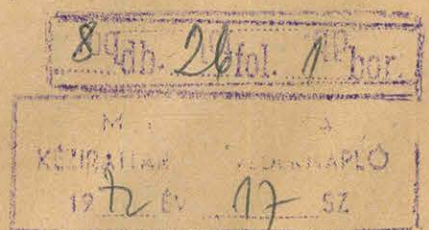 8 db. 26 fol. 1 bor.
M A
KÉZIRATTÁR NAPLÓ
1972 ÉV 17 SZ